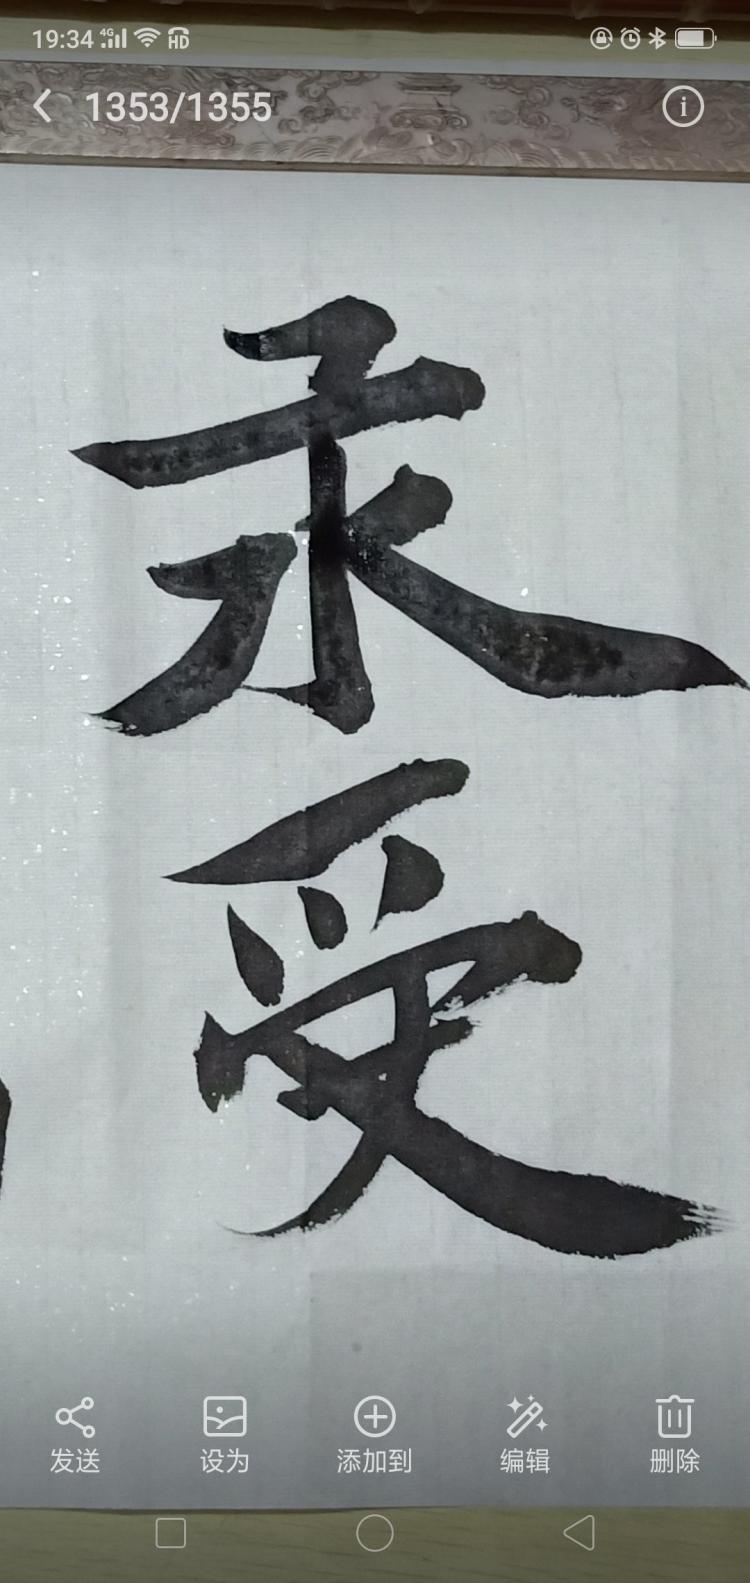 19:34 4G HD
1353/1355
承受
发送 设为 添加到 编辑 删除